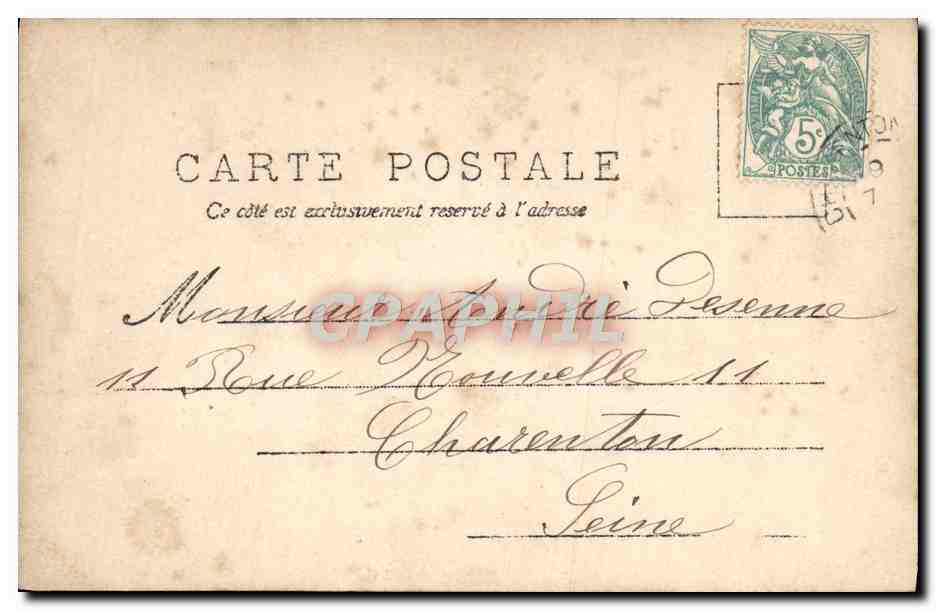 5c
POSTES
CARTE POSTALE
Ce côté est exclusivement reservé à l'adresse
Monsieur André Desenne
11 Rue Nouvelle 11
Charenton
Seine
CPAPHIL